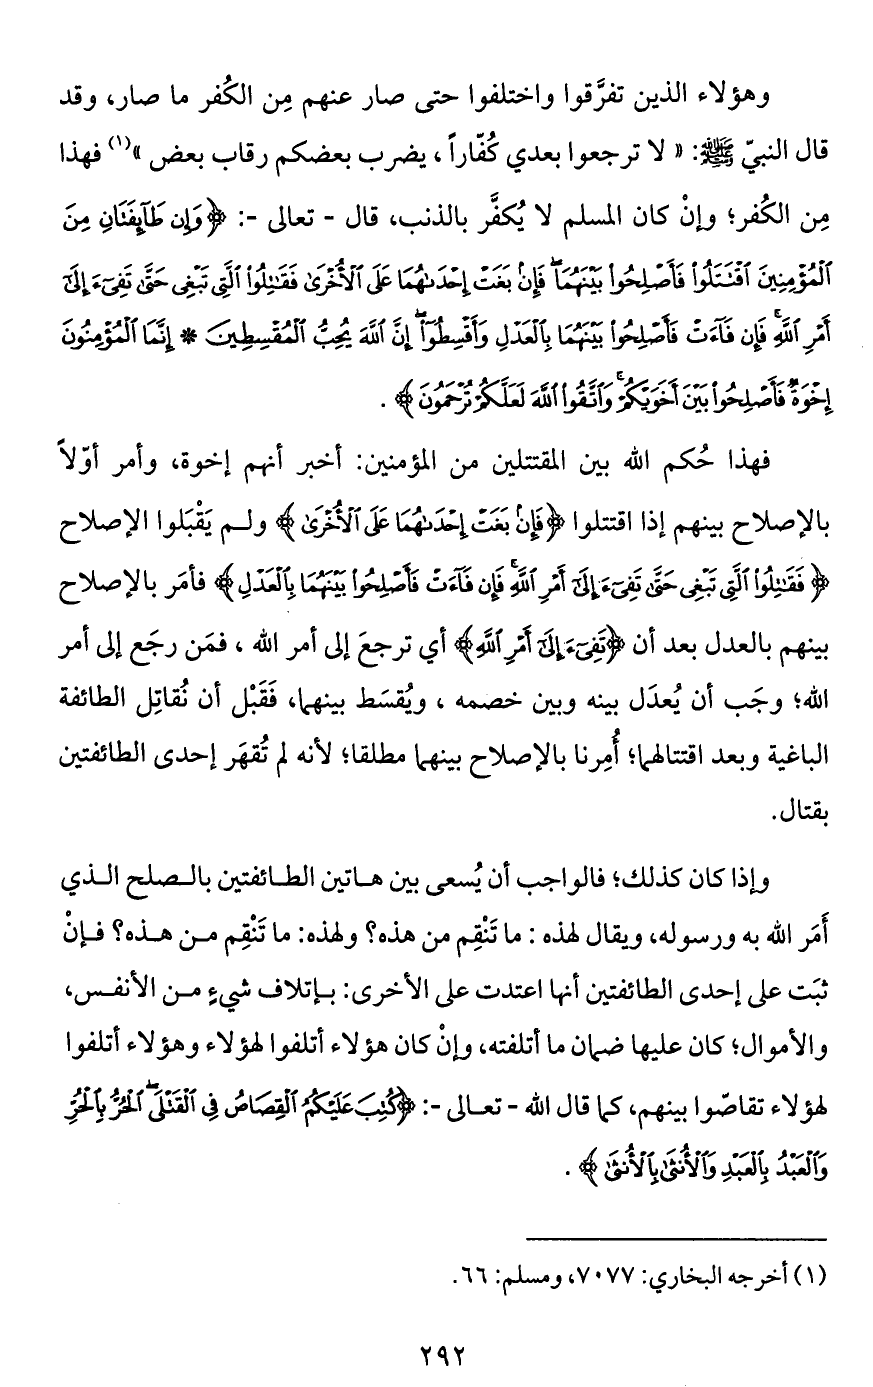 وهؤلاء الذين تفرَّقوا واختلفوا حتى صار عنهم مِن الكُفر ما صار، وقد
قال النبيّ ﷺ: « لا ترجعوا بعدي كُفّاراً ، يضرب بعضكم رقاب بعض »(١) فهذا
مِن الكُفر؛ وإنْ كان المسلم لا يُكفَّر بالذنب، قال - تعالى -: ﴿وَإِن طَآئِفَتَانِ مِنَ
ٱلْمُؤْمِنِينَ ٱقْتَتَلُوا۟ فَأَصْلِحُوا۟ بَيْنَهُمَا ۖ فَإِنۢ بَغَتْ إِحْدَىٰهُمَا عَلَى ٱلْأُخْرَىٰ فَقَٰتِلُوا۟ ٱلَّتِى تَبْغِى حَتَّىٰ تَفِىٓءَ إِلَىٰٓ
أَمْرِ ٱللَّهِ ۚ فَإِن فَآءَتْ فَأَصْلِحُوا۟ بَيْنَهُمَا بِٱلْعَدْلِ وَأَقْسِطُوٓا۟ ۖ إِنَّ ٱللَّهَ يُحِبُّ ٱلْمُقْسِطِينَ * إِنَّمَا ٱلْمُؤْمِنُونَ
إِخْوَةٌ فَأَصْلِحُوا۟ بَيْنَ أَخَوَيْكُمْ ۚ وَٱتَّقُوا۟ ٱللَّهَ لَعَلَّكُمْ تُرْحَمُونَ﴾ .
فهذا حُكم الله بين المقتتلين من المؤمنين: أخبر أنهم إخوة، وأمر أوّلاً
بالإصلاح بينهم إذا اقتتلوا ﴿فَإِنۢ بَغَتْ إِحْدَىٰهُمَا عَلَى ٱلْأُخْرَىٰ﴾ ولم يَقْبَلوا الإصلاح
﴿فَقَٰتِلُوا۟ ٱلَّتِى تَبْغِى حَتَّىٰ تَفِىٓءَ إِلَىٰٓ أَمْرِ ٱللَّهِ ۚ فَإِن فَآءَتْ فَأَصْلِحُوا۟ بَيْنَهُمَا بِٱلْعَدْلِ﴾ فأمَر بالإصلاح
بينهم بالعدل بعد أن ﴿تَفِىٓءَ إِلَىٰٓ أَمْرِ ٱللَّهِ﴾ أي ترجعَ إلى أمر الله ، فمَن رجَع إلى أمر
الله؛ وجَب أن يُعدَل بينه وبين خصمه ، ويُقسَط بينهما، فَقَبْل أن نُقاتِل الطائفة
الباغية وبعد اقتتالهما؛ أُمِرنا بالإصلاح بينهما مطلقا؛ لأنه لم تُقهَر إحدى الطائفتين
بقتال.
وإذا كان كذلك؛ فالواجب أن يُسعى بين هاتين الطائفتين بالصلح الذي
أمَر الله به ورسوله، ويقال لهذه : ما تَنْقِم من هذه؟ ولهذه: ما تَنْقِم من هذه؟ فإنْ
ثبَت على إحدى الطائفتين أنها اعتدت على الأخرى: بإتلاف شيءٍ من الأنفس،
والأموال؛ كان عليها ضمان ما أتلفته، وإنْ كان هؤلاء أتلفوا لهؤلاء وهؤلاء أتلفوا
لهؤلاء تقاصّوا بينهم، كما قال الله - تعالى -: ﴿كُتِبَ عَلَيْكُمُ ٱلْقِصَاصُ فِى ٱلْقَتْلَى ۖ ٱلْحُرُّ بِٱلْحُرِّ
وَٱلْعَبْدُ بِٱلْعَبْدِ وَٱلْأُنثَىٰ بِٱلْأُنثَىٰ﴾ .
(١) أخرجه البخاري: ٧٠٧٧، ومسلم: ٦٦.
٢٩٢